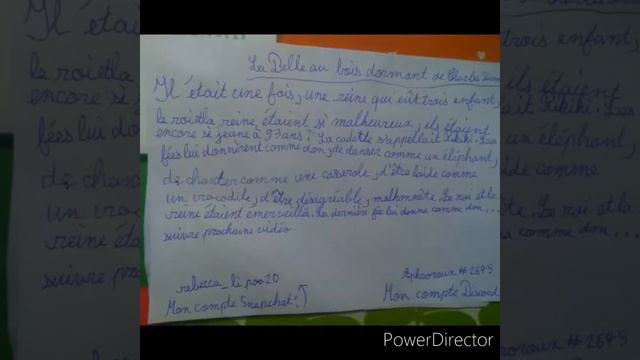 La Belle au bois dormant de Charles
Il était une fois, une reine qui eût trois enfant,
le roietla reine étaient si malheureux, ils étaient
encore si jeune à 93 ans! La cadette s'appellait Kikiki. Les
fées lui donnèrent comme don, de danser comme un éléphant,
de chanter comme une casserole, d'être laide comme
un crocodile, d'être désagréable, malhonnête. Le roi et la
reine étaient émerveillé. La dernière fée lui donna comme don...
suivre prochaine vidéo
rebecca_li poo20
Mon compte Snapchat!
#2645
Mon compte Discord
PowerDirector